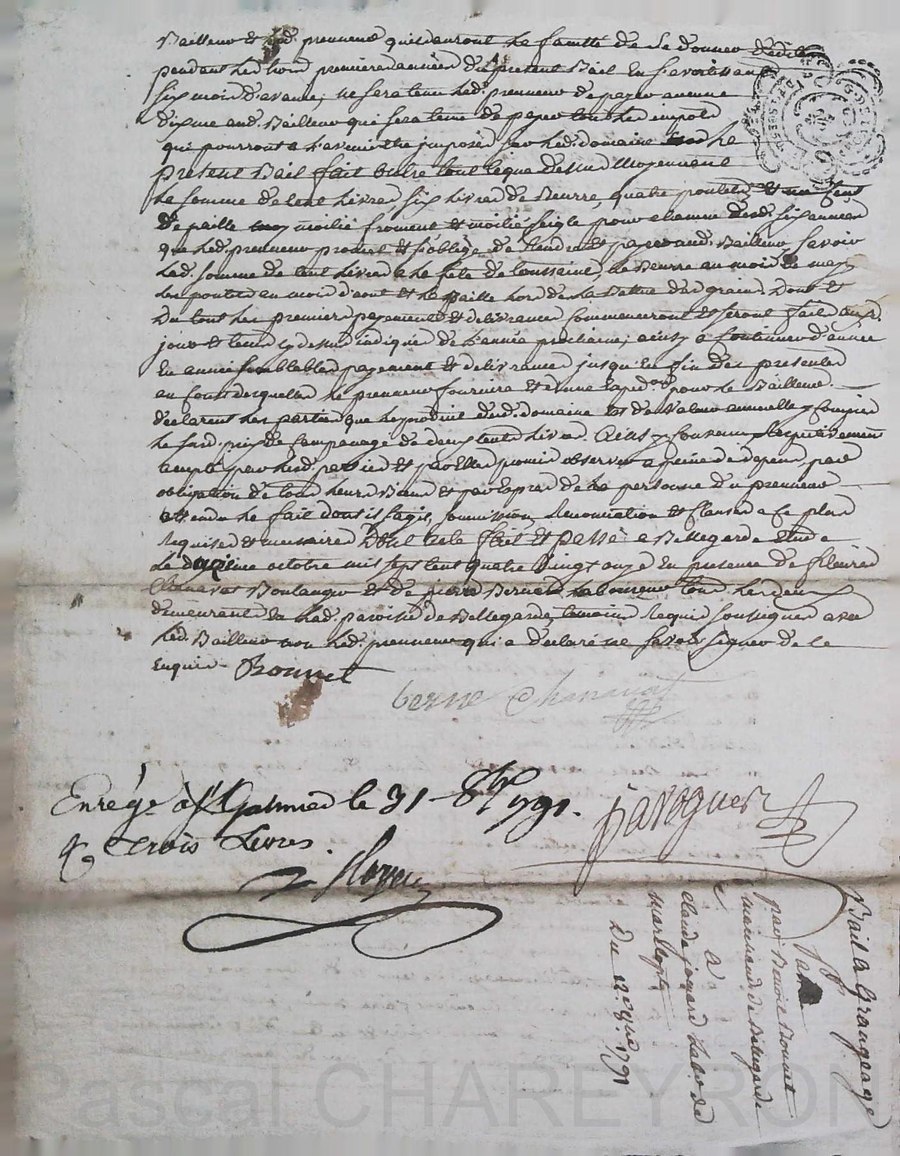 Bailleur et led. preneur qu'ils auront la faculté de se donner
pendant les trois premieres années du present Bail en s'avertissant
six mois d'avance, ne sera tenu led. preneur de payer aucune
dixme aud. Bailleur qui sera tenu de payer tous les impots
qui pourront a l'avenir etre imposés sur led. domaine le
present Bail fait outre tout ce que dessus moyennant
la somme de cent livres six livres de Beurre, quatre poulets et un cent
de paille moitié froment et moitié seigle pour chacune desd. six années
que led. preneur promet et s'oblige de rendre et payer aud. Bailleur, savoir
lad. somme de cent livres a la fete de toussaint, le Beurre au mois de may
les poulets au mois d'aout et la paille lors de la Batture des grains. Dont et
Du tout les premiers payements et delivrances commenceront et seront faits aux
jours et tems cy dessus indiqués de l'année prochaine, ainsy a continuer d'année
en année semblables payements et delivrances jusqu'en fin des presentes
au cours desquelles le preneur fournira une exped.on pour le Bailleur.
declarent les parties que le produit dud. domaine est de valeur annuelle y compris
le sur le de deux cents livres. Ainsy convenu respectivement
accepté par lesd. parties et par elles promis observer a peine de depens par
obligation de tous leurs Biens et par exprès de la personne du preneur
attendu le fait dont il s'agit, soumissions, Renonciations et Clauses a ce plus
requises et necessaires Dont acte fait et passé a Bellegarde etude
Le douzieme octobre mil sept cent quatre vingt onze en presence de
Chanavat Boulanger et de pierre Bernard laboureur tous les deux
demeurants en lad. paroisse de Bellegarde, temoins Requis soussignés avec
led. Bailleur non led. preneur qui a declaré ne savoir signer de ce
enquis Bonnet
berne Chanavat
Enrég.é à St Galmier le 31 8bre 1791.
trois Livres.
Bail a Grangeage
par Benoit Bonnet
marchand de Bellegarde
A
claude jouard lab.r de
Du 12 8bre 1791